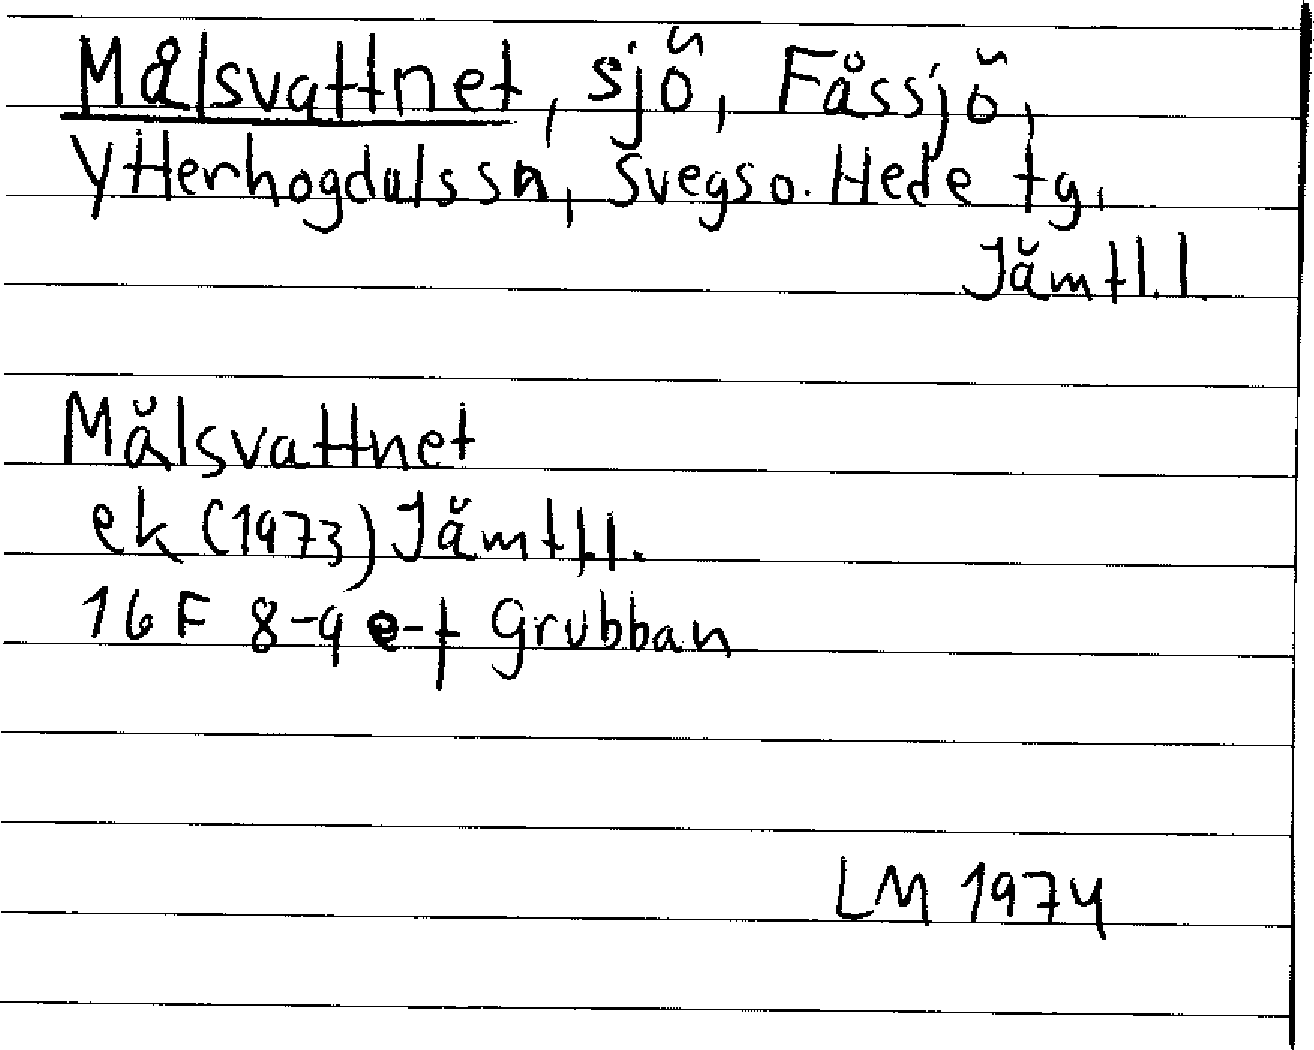 Målsvattnet, sjö, Fåssjö,
Ytterhogdals sn, Svegs o. Hede tg,
Jämtl. l
Målsvattnet
ek (1973) Jämtl l.
16 F 8-9 e-f Grubban
LM 1974